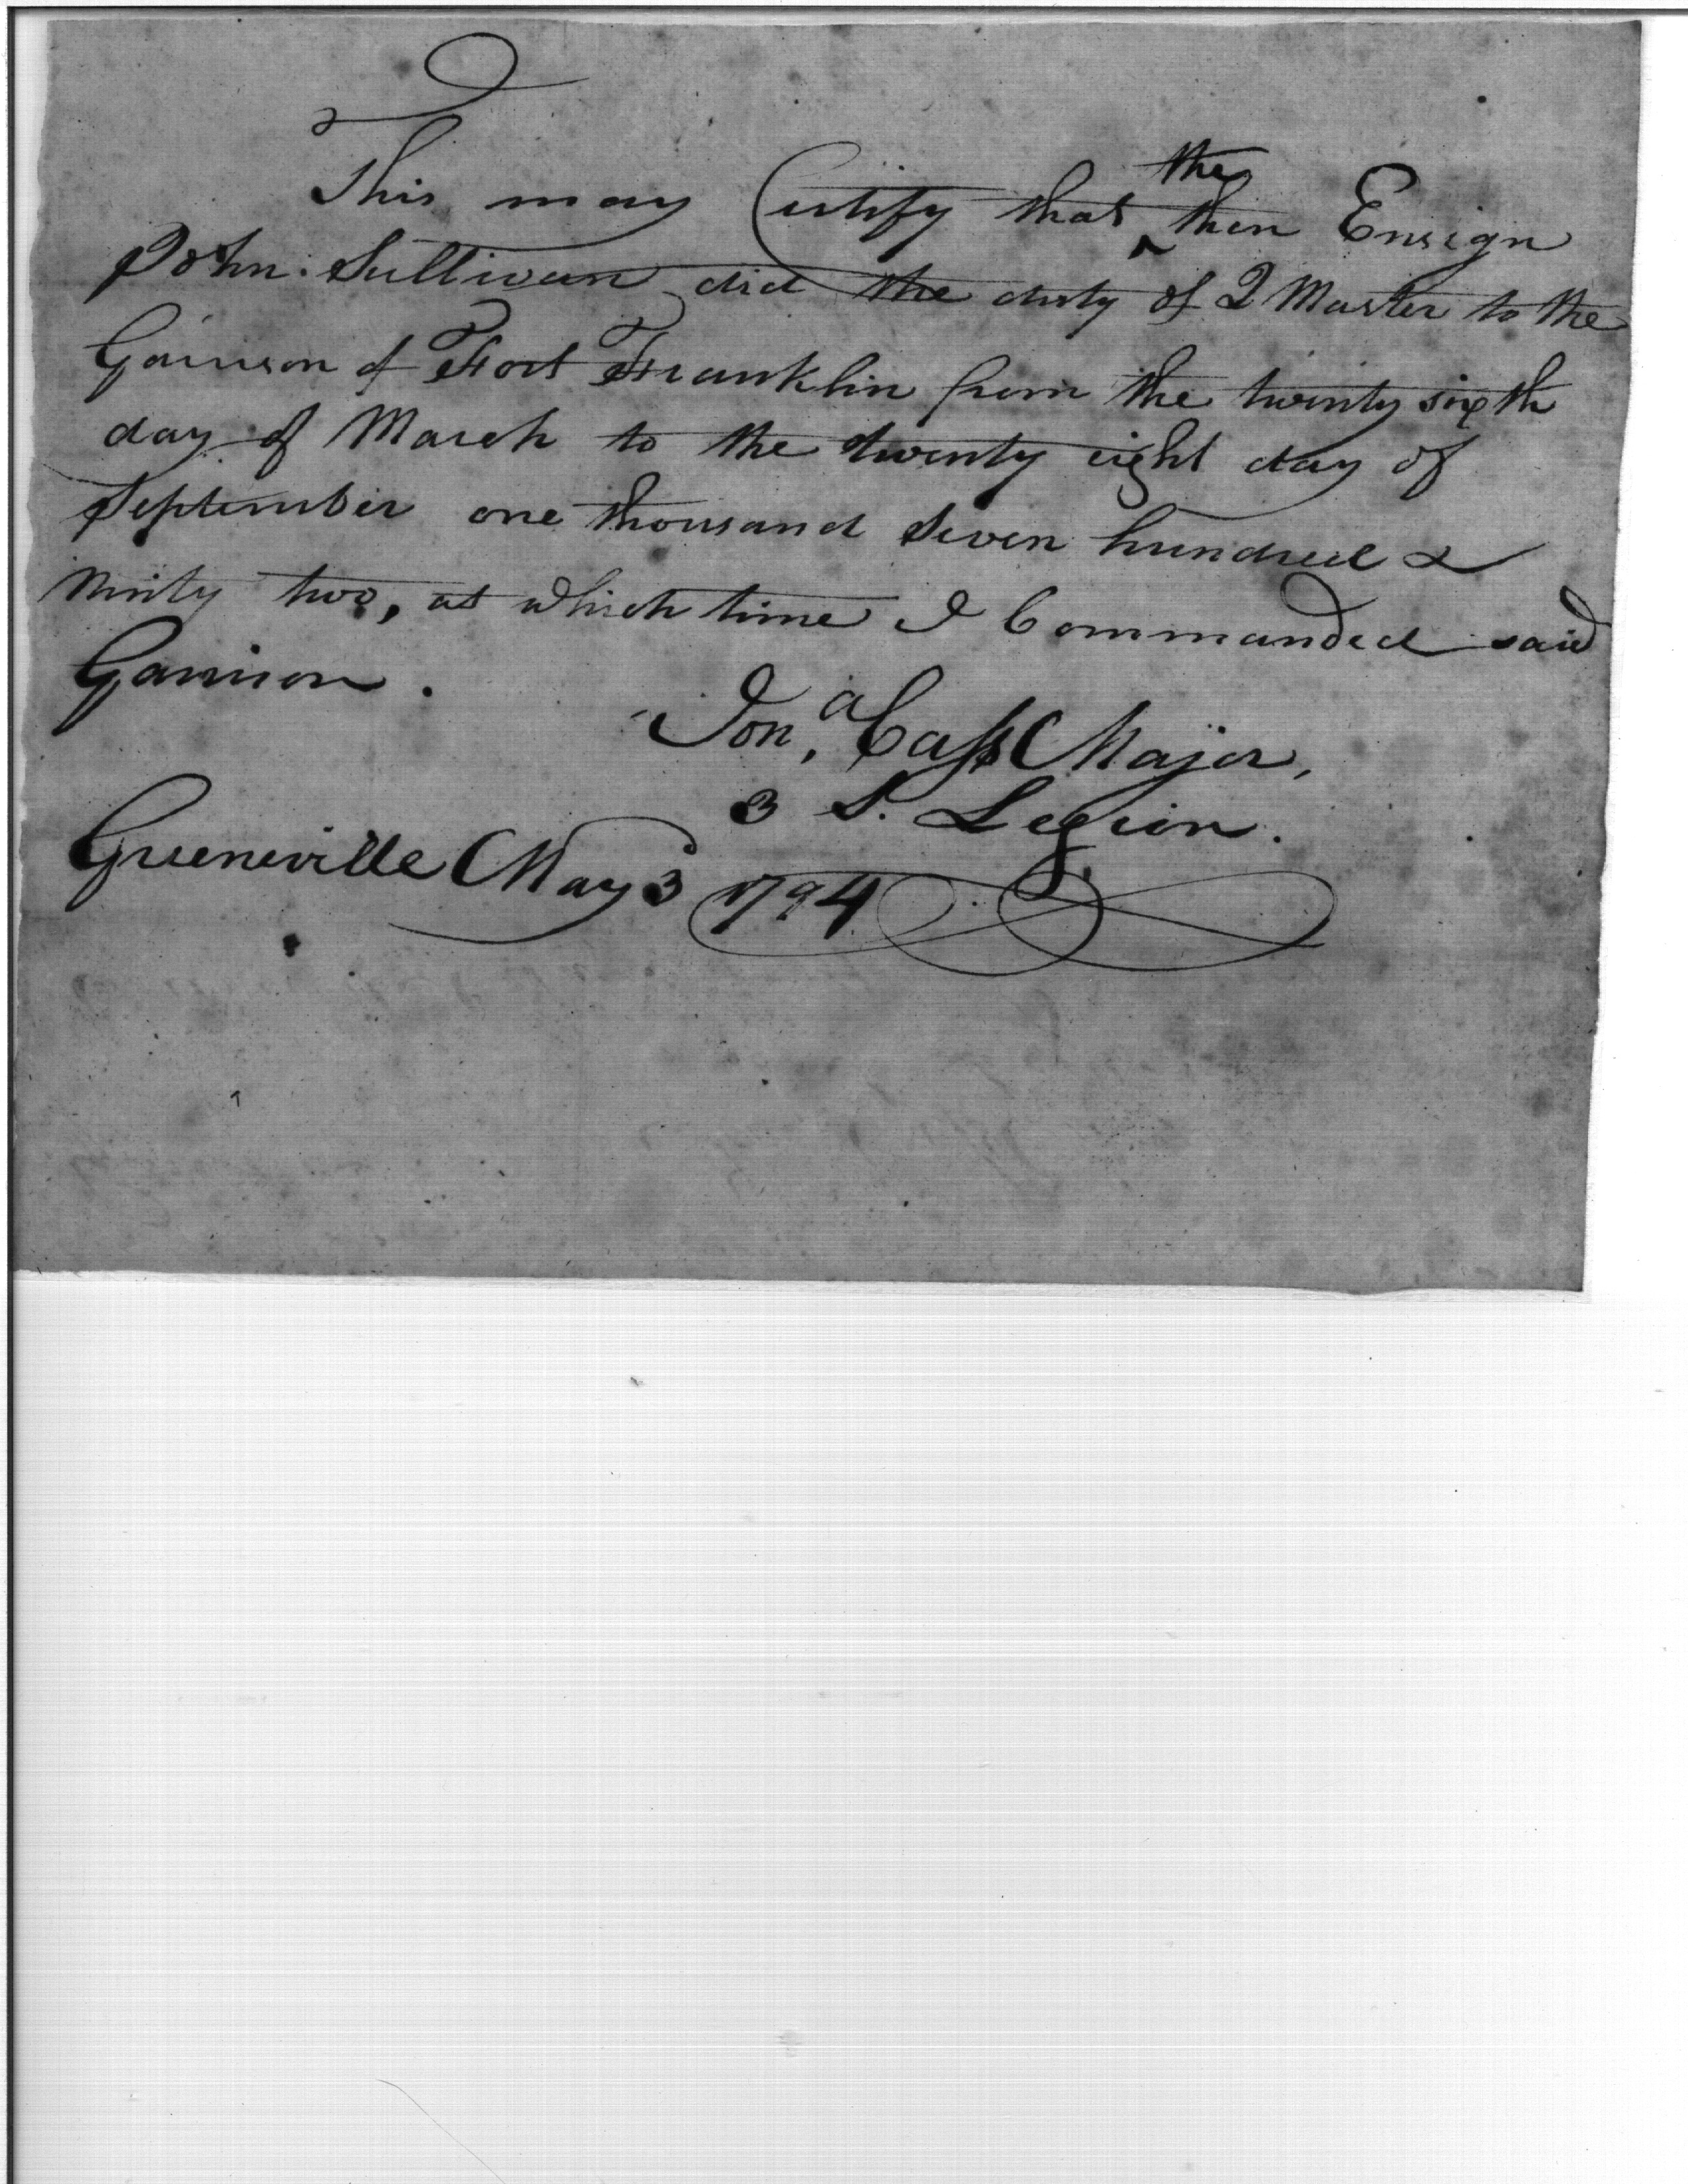 This may Certify that the then Ensign
John Sullivan did the duty of Q Master to the
Garrison of Fort Franklin from the twenty sixth
day of March to the twenty eight day of
September one thousand Seven hundred &
Ninty two, at which time I Commanded said
Garrison.
Jon,a Cass Major,
3 S. Legion.
Greeneville May 3 1794